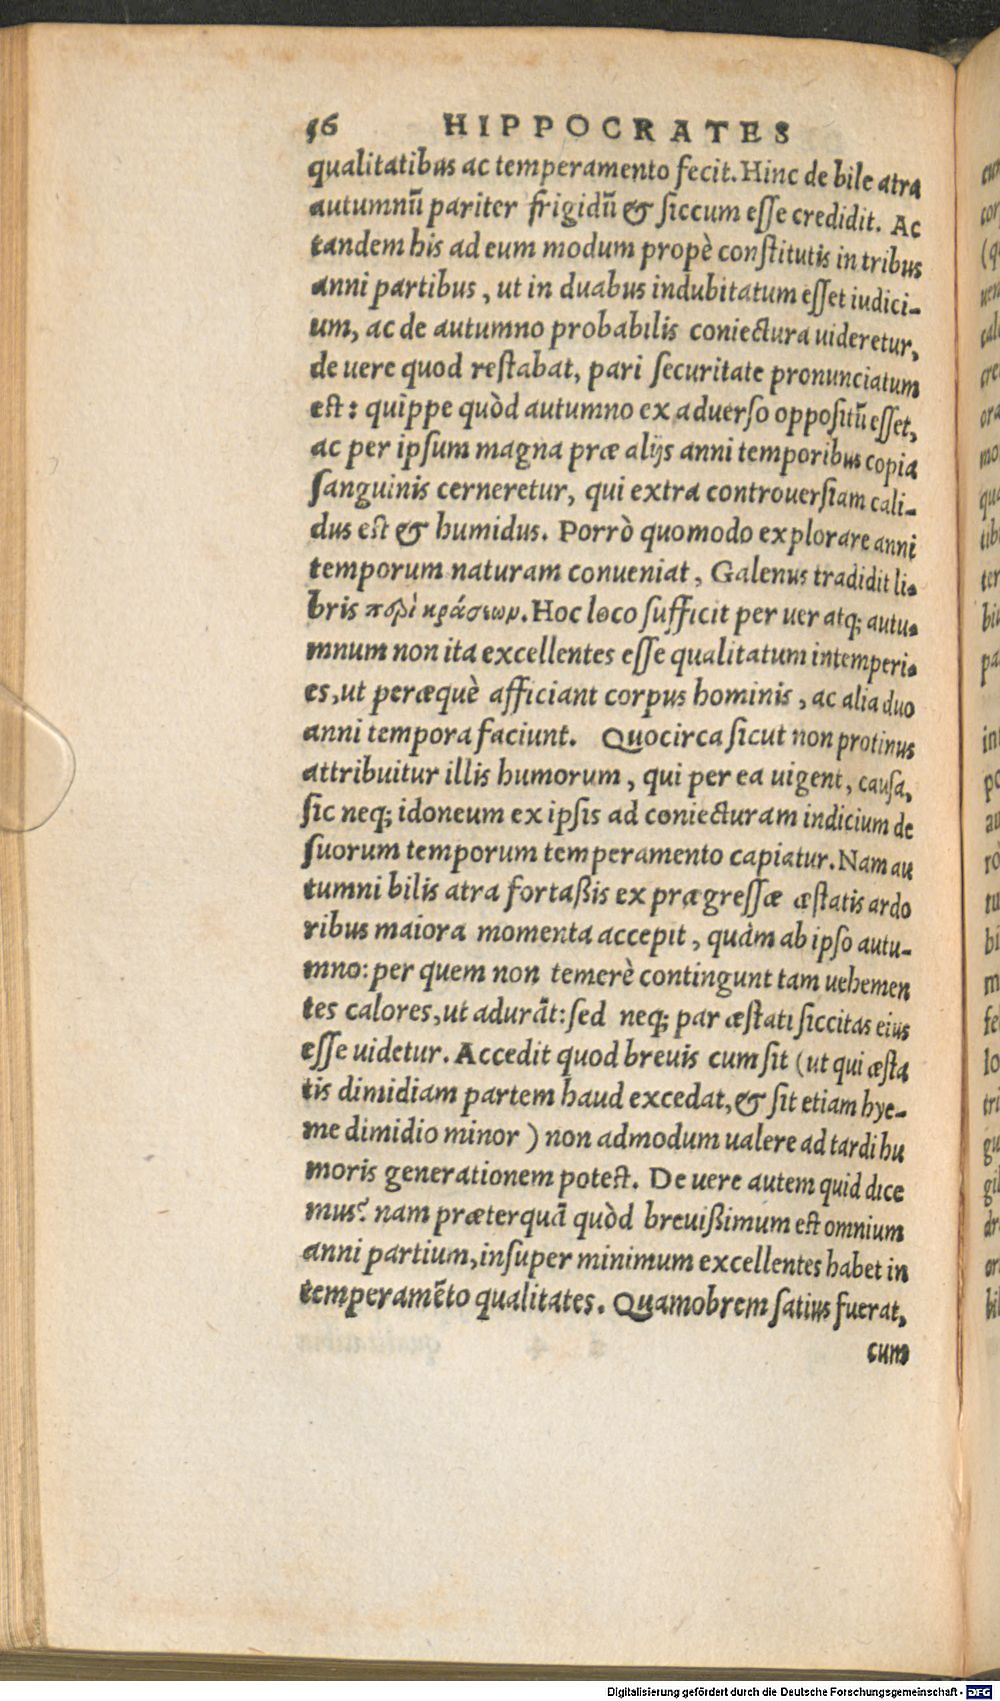 56 HIPPOCRATES
qualitatibus ac temperamento fecit. Hinc de bile atra
autumnũ pariter frigidũ & ſiccum eſſe credidit. Ac
tandem his ad eum modum propè conſtitutis in tribus
anni partibus, ut in duabus indubitatum eſſet iudici-
um, ac de autumno probabilis coniectura uideretur,
de uere quod reſtabat, pari ſecuritate pronunciatum
eſt: quippe quòd autumno ex aduerſo oppoſitũ eſſet,
ac per ipſum magna præ alijs anni temporibus copia
ſanguinis cerneretur, qui extra controuerſiam cali-
dus eſt & humidus. Porrò quomodo explorare anni
temporum naturam conueniat, Galenus tradidit li-
bris περὶ κράσεων. Hoc loco ſufficit per uer atq; autu-
mnum non ita excellentes eſſe qualitatum intemperi-
es, ut peræquè afficiant corpus hominis, ac alia duo
anni tempora faciunt. Quocirca ſicut non protinus
attribuitur illis humorum, qui per ea uigent, cauſa,
ſic neq; idoneum ex ipſis ad coniecturam indicium de
ſuorum temporum temperamento capiatur. Nam au
tumni bilis atra fortaßis ex prægreſſæ æſtatis ardo
ribus maiora momenta accepit, quàm ab ipſo autu-
mno: per quem non temerè contingunt tam uehemen
tes calores, ut adurãt: ſed neq; par æſtati ſiccitas eius
eſſe uidetur. Accedit quod breuis cum ſit (ut qui æſta
tis dimidiam partem haud excedat, & ſit etiam hye-
me dimidio minor) non admodum ualere ad tardi hu
moris generationem poteſt. De uere autem quid dice
mus? nam præterquã quòd breuißimum eſt omnium
anni partium, inſuper minimum excellentes habet in
temperamẽto qualitates. Quamobrem ſatius fuerat,
cum
Digitalisierung gefördert durch die Deutsche Forschungsgemeinschaft - DFG